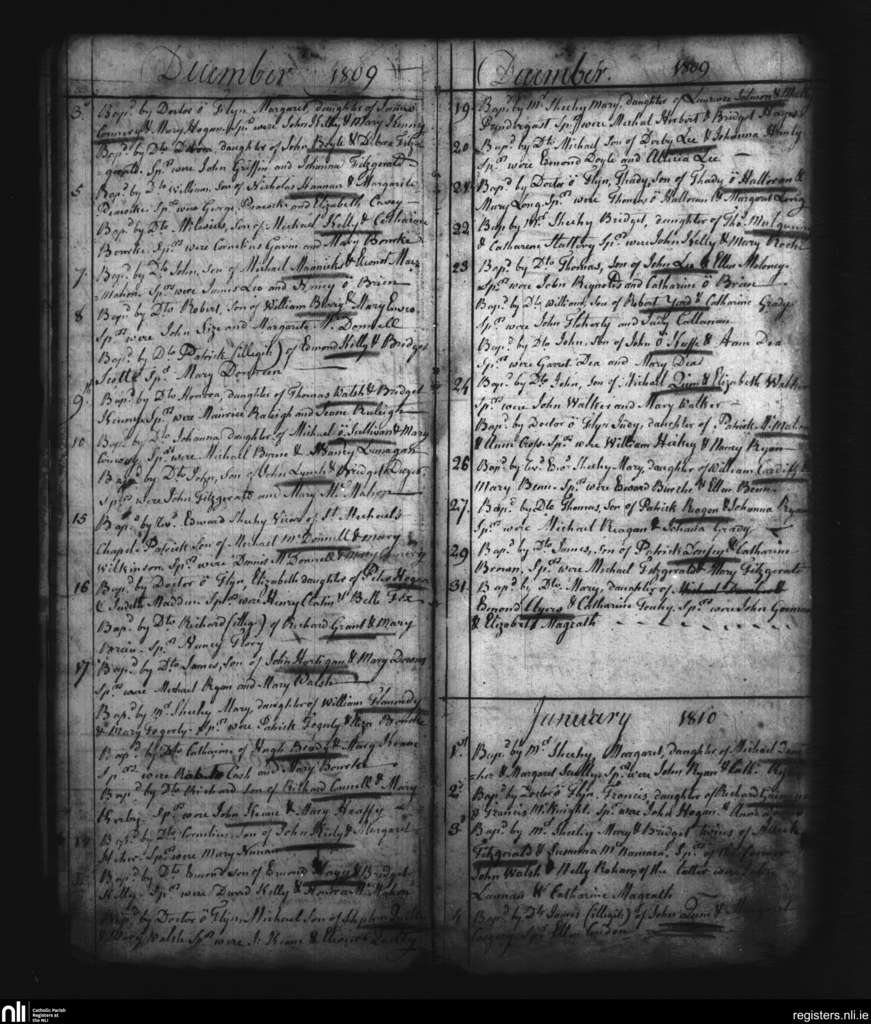 December 1809
3d Bapd. by Doctor ö Flyn, Margaret, daughter of James
Connery & Mary Hogan. Sprs. were John Kelly & Mary Kenny
Bapd. by Dto. Debra, daughter of John Boyle & Debra Fitz-
gerald. Sprs. were John Griffin and Johanna Fitzgerald
5 Bapd. by Dto. William, Son of Nicholas Hannan & Margarite
Peacocke. Sprs. were George Peacocke and Elizabeth Casey
Bapd. by Dto. Son of Michael Kelly & Catharine
Bourke. Sprs. were Cornelius Gavin and Mary Bourke
7. Bapd. by Dto. John, Son of Michael &
Mahon. Sprs. were James Leo and Nancy ö Brien
8 Bapd. by Dto. Robert, Son of William & Mary
Sprs. were John Size and Margarite Mc. Donnell
Bapd. by Dto. Patrick (illegit) of Edmond Kelly & Bridget
Scott Spr. Mary
9th Bapd. by Dto. Honora, daughter of Thomas Walsh & Bridget
Sprs. were Maurice Raleigh and Jeane Raleigh
10 Bapd. by Dto. Johanna daughter of Michael ö Sullivan & Mary
Conway Sprs. were Michael Byrne & Nancy Lanagan
Bapd. by Dto. John, Son of John Lynch & Bridget
Sprs. were John Fitzgerald and Mary Mc. Mahon
15 Bapd. by Revd. Edward Sheehy Vicar of St. Michael's
Chapel. Patrick Son of Michael Mc Donnell & Mary
Wilkinson. Sprs. were Dennis Mc Donnell & Mary
16 Bapd. by Doctor ö Flyn, Elizabeth daughter of Peter Hogan
& Judith Madden. Sprs. were Henry & Belle Fox
Bapd. by Dto. Richard (illegt.) of Richard Grant & Mary
Brien. Spr. Nancy Flory
17 Bapd. by Dto. James, Son of John Hartigan & Mary Downs
Sprs. were Michael Ryan and Mary Walsh
Bapd. by Mr. Sheehy Mary, daughter of William
& Mary Fogerty. Sprs. were Patrick Fogerty & Eliza Bourke
Bapd. by Dto. Catharine of Hugh Brady & Mary Keane
Sprs. were Cash and Mary Bourke
Bapd. by Dto. Richard Son of Richard Connell & Mary
Sprs. were John Keane & Mary
Bapd. by Dto. Cornelius, Son of John & Margaret
Sprs. were Mary Nunan
Bapd. by Dto. Edmond Son of Edmond Hayes & Bridget
Kelly. Sprs. were David Kelly & Honora Mc. Mahon
Bapd. by Doctor ö Flyn, Michael Son of Stephen
& Mary Walsh Sprs. were J. Keane & Eleanor
December. 1809
19. Bapd. by Mr. Sheehy Mary, daughter of Laurence Johnson &
Prendergast Sprs. were Michael Herbert & Bridget Hayes
20 Bapd. by Dto. Michael, Son of Darby Lee & Johanna Hanly
Sprs. were Edmond Doyle and Allicia Lee
21 Bapd. by Doctor ö Flyn, Thady, Son of Thady ö Halloran &
Mary Long. Sprs. were Thomas ö Halloran & Margaret Long
22. Bapd. by Mr. Sheehy Bridget, daughter of Thos.
& Catharine Slattery Sprs. were John Kelly & Mary Roche
23 Bapd. by Dto. Thomas, Son of John Leo & Ellen Moloney.
Sprs. were John Reynolds and Catharine ö Brien
Bapd. by Dto. William, Son of Robert York & Catharine Grady
Sprs. were John Flaherty and Judy Callanan
Bapd. by Dto. John, Son of John ö Keeffe & Ann Dea
Sprs. were Garret Dea and Mary Dea
24 Bapd. by Dto. John, Son of Michael Quin & Elizabeth Walker
Sprs. were John Walker and Mary Walker
Bapd. by Doctor ö Flyn Judy, daughter of Patrick Mc. Mahon
& Anne Cross. Sprs. were William Hickey & Nancy Ryan
26 Bapd. by Revd. Edwd. Sheehy Mary, daughter of William &
Mary Bean. Sprs. were Edward Burche & Ellen Bean
27. Bapd. by Dto. Thomas, Son of Patrick Reagan & Johanna Ryan
Sprs. were Michael Reagan & Johanna Grady
29 Bapd. by Dto. James, Son of Patrick & Catharine
Brown. Sprs. were Michael Fitzgerald & Mary Fitzgerald
31. Bapd. by Dto. Mary, daughter of
Edmond Myers & Catharine Touhy. Sprs. were John
& Elizabeth Magrath
January 1810
1st. Bapd. by Mr. Sheehy, Margaret, daughter of Michael
& Margaret Scully. Sprs. were John Ryan & Cath. Ryan
2d Bapd. by Doctor ö Flyn. Francis daughter of Richard
& Francis Mc. Knight. Sprs. were John Hogan &
3d Bapd. by Mr. Sheehy Mary & Bridget, twins of
Fitzgerald & Susanna Mc. Namara. Sprs. of the former
John Walsh & Nelly of the latter were
Lannan & Catharine Magrath
4 Bapd. by Dto. James (illegit.) of John Quin & Margaret
Spr. Ellen
nli
Catholic Parish
Registers at
the NLI
registers.nli.ie